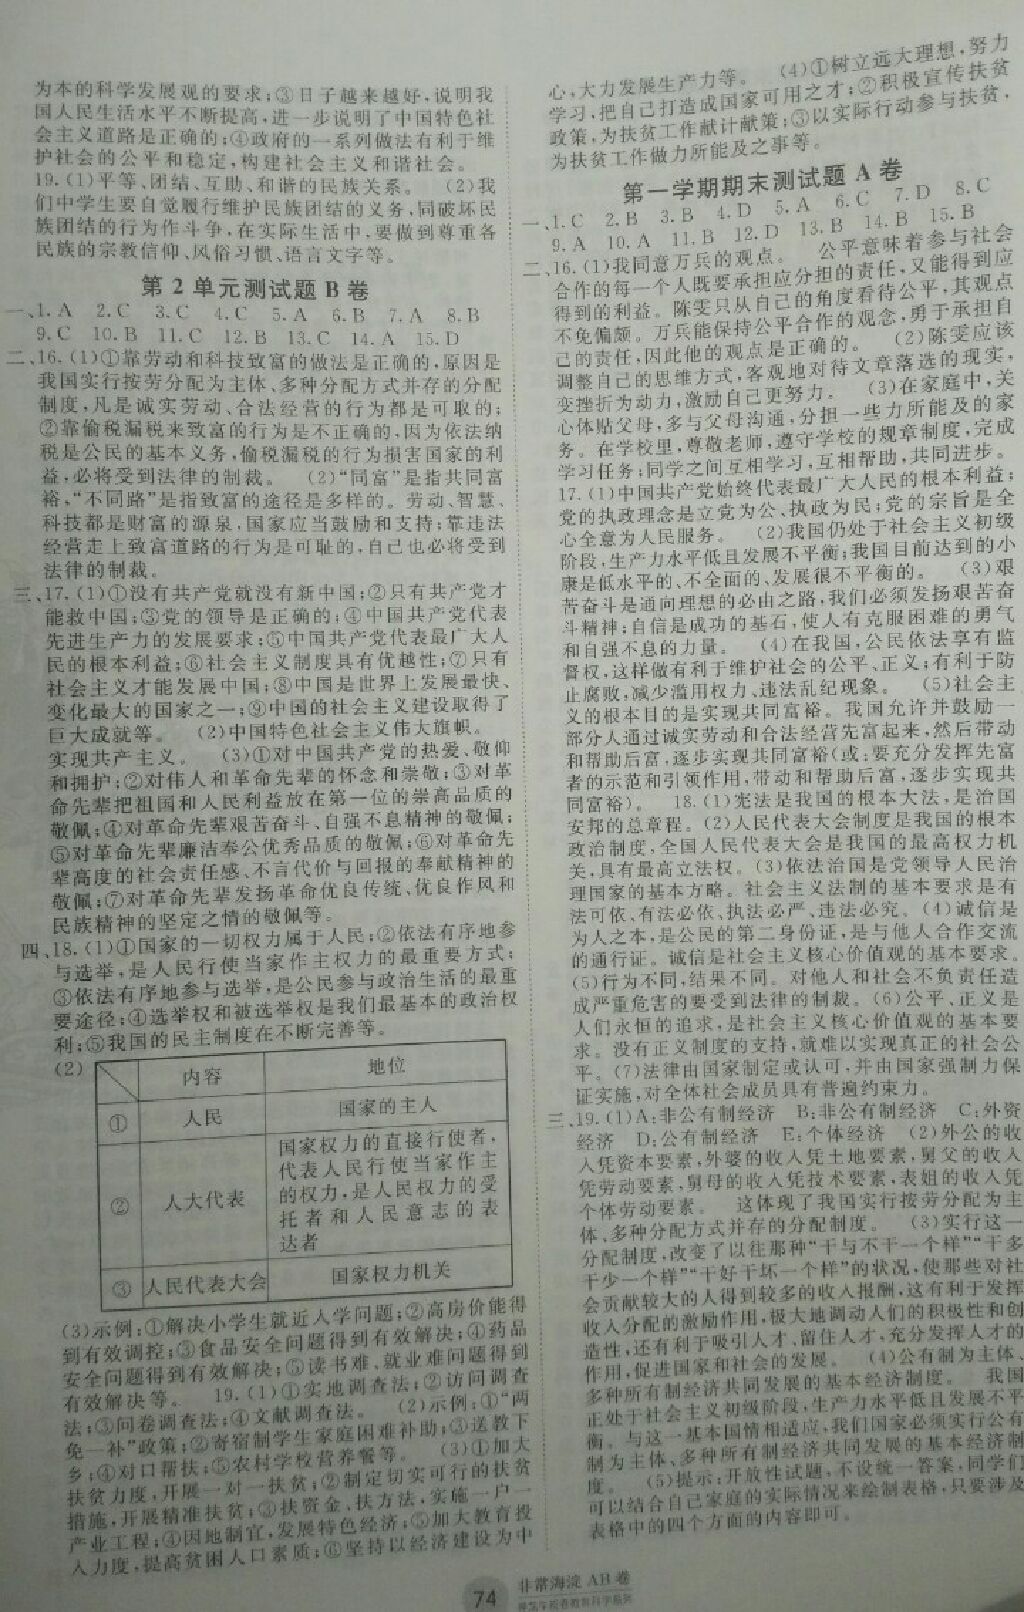 为本的科学发展观的要求;③日子越来越好,说明我
国人民生活水平不断提高,进一步说明了中国特色社
会主义道路是正确的;④政府的一系列做法有利于维
护社会的公平和稳定,构建社会主义和谐社会。
19.(1)平等、团结、互助、和谐的民族关系。 (2)我
们中学生要自觉履行维护民族团结的义务,同破坏民
族团结的行为作斗争,在实际生活中,要做到尊重各
民族的宗教信仰、风俗习惯、语言文字等。
第2单元测试题B卷
一、1.A 2.C 3.C 4.C 5.A 6.B 7.A 8.B
9.C 10.B 11.C 12.B 13.C 14.A 15.D
二、16.(1)①靠劳动和科技致富的做法是正确的,原因是
我国实行按劳分配为主体、多种分配方式并存的分配
制度,凡是诚实劳动、合法经营的行为都是可取的;
②靠偷税漏税来致富的行为是不正确的,因为依法纳
税是公民的基本义务,偷税漏税的行为损害国家的利
益,必将受到法律的制裁。 (2)“同富”是指共同富
裕,“不同路”是指致富的途径是多样的。劳动、智慧、
科技都是财富的源泉,国家应当鼓励和支持;靠违法
经营走上致富道路的行为是可耻的,自己也必将受到
法律的制裁。
三、17.(1)①没有共产党就没有新中国;②只有共产党才
能救中国;③党的领导是正确的;④中国共产党代表
先进生产力的发展要求;⑤中国共产党代表最广大人
民的根本利益;⑥社会主义制度具有优越性;⑦只有
社会主义才能发展中国;⑧中国是世界上发展最快、
变化最大的国家之一;⑨中国的社会主义建设取得了
巨大成就等。 (2)中国特色社会主义伟大旗帜。
实现共产主义。 (3)①对中国共产党的热爱、敬仰
和拥护;②对伟人和革命先辈的怀念和崇敬;③对革
命先辈把祖国和人民利益放在第一位的崇高品质的
敬佩;④对革命先辈艰苦奋斗、自强不息精神的敬佩;
⑤对革命先辈廉洁奉公优秀品质的敬佩;⑥对革命先
辈高度的社会责任感、不言代价与回报的奉献精神的
敬佩;⑦对革命先辈发扬革命优良传统、优良作风和
民族精神的坚定之情的敬佩等。
四、18.(1)①国家的一切权力属于人民;②依法有序地参
与选举,是人民行使当家作主权力的最重要方式;
③依法有序地参与选举,是公民参与政治生活的最重
要途径;④选举权和被选举权是我们最基本的政治权
利;⑤我国的民主制度在不断完善等。
(2)
内容 地位
① 人民 国家的主人
② 人大代表 国家权力的直接行使者,
代表人民行使当家作主
的权力,是人民权力的受
托者和人民意志的表
达者
③ 人民代表大会 国家权力机关
(3)示例:①解决小学生就近入学问题;②高房价能得
到有效调控;③食品安全问题得到有效解决;④药品
安全问题得到有效解决;⑤读书难、就业难问题得到
有效解决等。 19.(1)①实地调查法;②访问调查
法;③问卷调查法;④文献调查法。 (2)示例:①“两
免一补”政策;②寄宿制学生家庭困难补助;③送教下
乡;④对口帮扶;⑤农村学校营养餐等。 (3)①加大
扶贫力度,开展一对一扶贫;②制定切实可行的扶贫
措施,开展精准扶贫;③扶资金、扶方法,实施一户一
产业工程;④因地制宜,发展特色经济;⑤加大教育投
入力度,提高贫困人口素质;⑥坚持以经济建设为中
心,大力发展生产力等。 (4)①树立远大理想,努力
学习,把自己打造成国家可用之才;②积极宣传扶贫
政策,为扶贫工作献计献策;③以实际行动参与扶贫,
为扶贫工作做力所能及之事等。
第一学期期末测试题A卷
一、1.C 2.B 3.B 4.D 5.A 6.C 7.D 8.C
9.A 10.A 11.B 12.D 13.B 14.B 15.B
二、16.(1)我同意万兵的观点。 公平意味着参与社会
合作的每一个人既要承担应分担的责任,又能得到应
得到的利益。陈雯只从自己的角度看待公平,其观点
不免偏颇。万兵能保持公平合作的观念,勇于承担自
己的责任,因此他的观点是正确的。 (2)陈雯应该
调整自己的思维方式,客观地对待文章落选的现实,
变挫折为动力,激励自己更努力。 (3)在家庭中,关
心体贴父母,多与父母沟通,分担一些力所能及的家
务。在学校里,尊敬老师,遵守学校的规章制度,完成
学习任务;同学之间互相学习,互相帮助,共同进步。
17.(1)中国共产党始终代表最广大人民的根本利益;
党的执政理念是立党为公、执政为民;党的宗旨是全
心全意为人民服务。 (2)我国仍处于社会主义初级
阶段,生产力水平低且发展不平衡;我国目前达到的小
康是低水平的、不全面的、发展很不平衡的。 (3)艰
苦奋斗是通向理想的必由之路,我们必须发扬艰苦奋
斗精神;自信是成功的基石,使人有克服困难的勇气
和自强不息的力量。 (4)在我国,公民依法享有监
督权,这样做有利于维护社会的公平、正义;有利于防
止腐败,减少滥用权力、违法乱纪现象。 (5)社会主
义的根本目的是实现共同富裕。我国允许并鼓励一
部分人通过诚实劳动和合法经营先富起来,然后带动
和帮助后富,逐步实现共同富裕(或:要充分发挥先富
者的示范和引领作用,带动和帮助后富,逐步实现共
同富裕)。 18.(1)宪法是我国的根本大法,是治国
安邦的总章程。(2)人民代表大会制度是我国的根本
政治制度,全国人民代表大会是我国的最高权力机
关,具有最高立法权。(3)依法治国是党领导人民治
理国家的基本方略。社会主义法制的基本要求是有
法可依、有法必依、执法必严、违法必究。(4)诚信是
为人之本,是公民的第二身份证,是与他人合作交流
的通行证。诚信是社会主义核心价值观的基本要求。
(5)行为不同,结果不同。对他人和社会不负责任造
成严重危害的要受到法律的制裁。(6)公平、正义是
人们永恒的追求,是社会主义核心价值观的基本要
求。没有正义制度的支持,就难以实现真正的社会公
平。(7)法律由国家制定或认可,并由国家强制力保
证实施,对全体社会成员具有普遍约束力。
三、19.(1)A:非公有制经济 B:非公有制经济 C:外资
经济 D:公有制经济 E:个体经济 (2)外公的收
入凭资本要素,外婆的收入凭土地要素,舅父的收入
凭劳动要素,舅母的收入凭技术要素,表姐的收入凭
个体劳动要素。 这体现了我国实行按劳分配为主
体、多种分配方式并存的分配制度。 (3)实行这一
分配制度,改变了以往那种“干与不干一个样”“干多
干少一个样”“干好干坏一个样”的状况,使那些对社
会贡献较大的人得到较多的收入报酬,这有利于发挥
收入分配的激励作用,极大地调动人们的积极性和创
造性,还有利于吸引人才、留住人才,充分发挥人才的
作用,促进国家和社会的发展。 (4)公有制为主体、
多种所有制经济共同发展的基本经济制度。 我国
正处于社会主义初级阶段,生产力水平低且发展不平
衡。与这一基本国情相适应,我们国家必须实行公有
制为主体、多种所有制经济共同发展的基本经济制
度。 (5)提示:开放性试题,不设统一答案,同学们
可以结合自己家庭的实际情况来绘制表格,只要涉及
表格中的四个方面的内容即可。
74 非常海淀AB卷